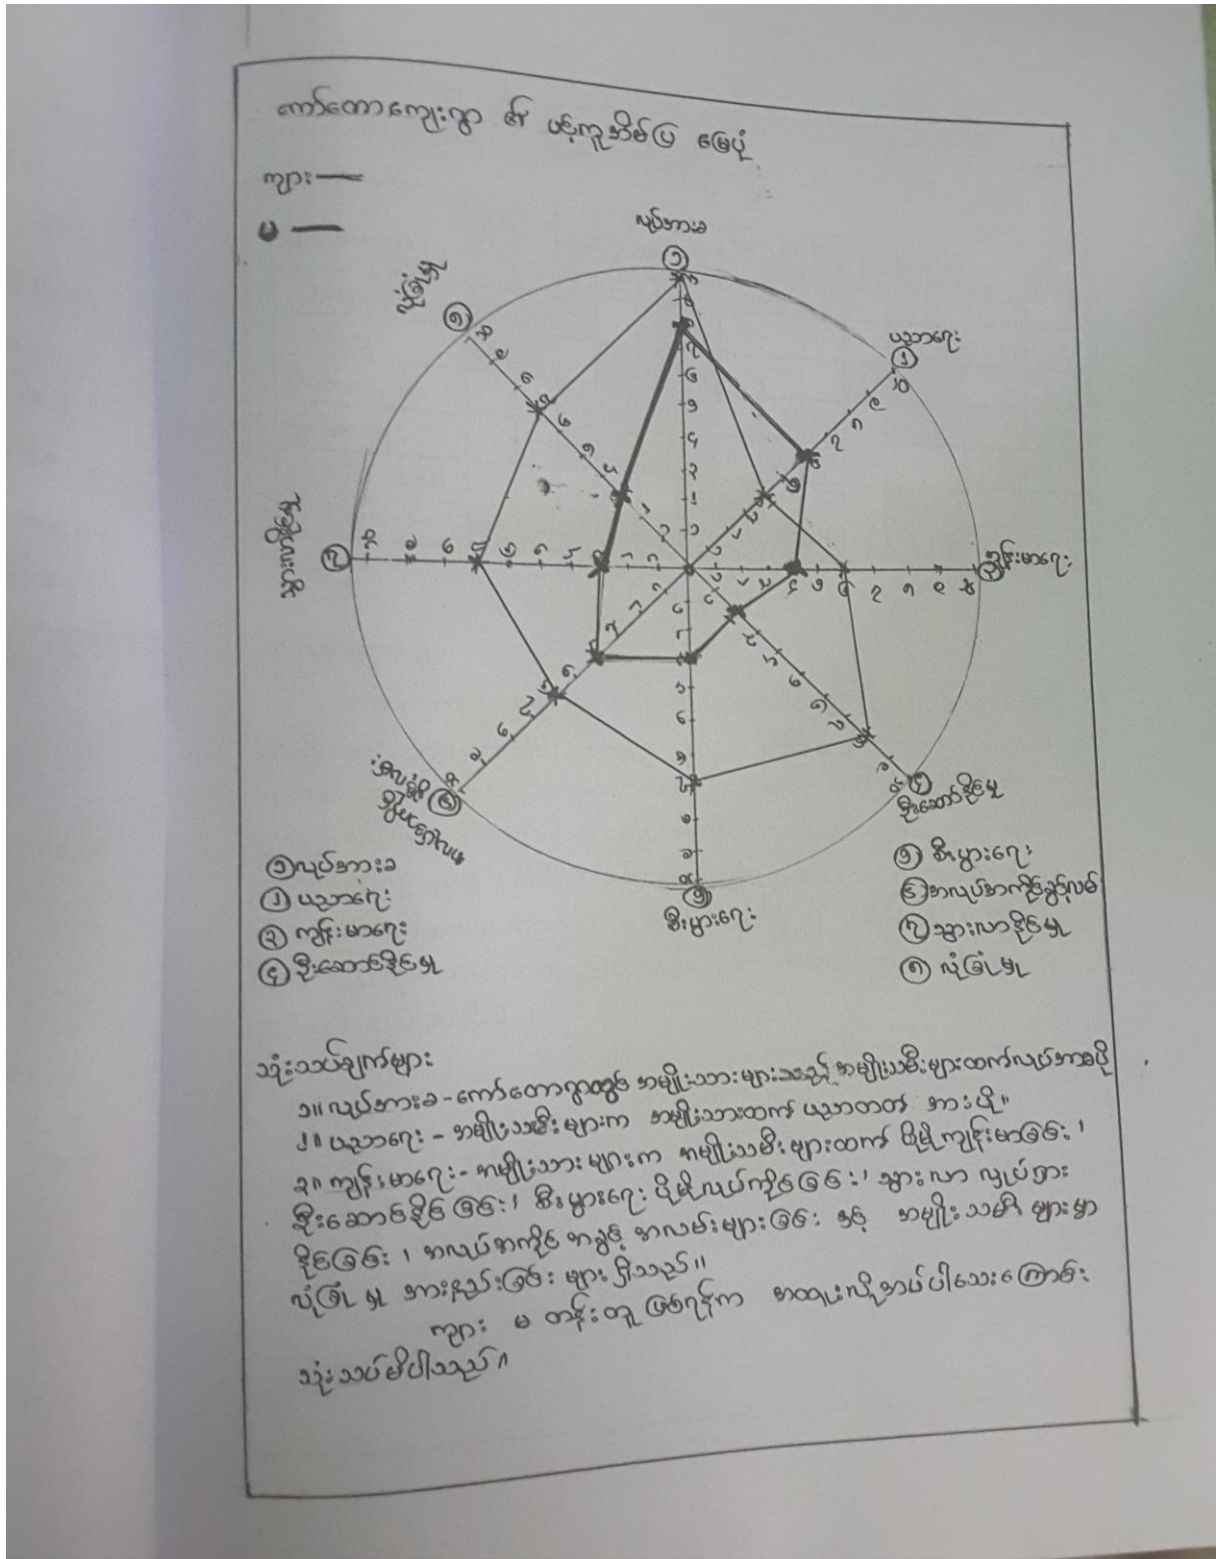 ကော်တောကျေးရွာ ၏ ပင့်ကူအိမ်ပြ မြေပုံ
ကျား
မ
လုပ်အားခ
ပညာရေး
ကျန်းမာရေး
ဦးဆောင်နိုင်မှု
စီးပွားရေး
လုံခြုံမှု
① လုပ်အားခ
၂ ပညာရေး
၃ ကျန်းမာရေး
၄ ဦးဆောင်နိုင်မှု
၅ စီးပွားရေး
၆ အလုပ်အကိုင်ခွင့်လမ်း
၇ သွားလာနိုင်မှု
၈ လုံခြုံမှု
သုံးသပ်ချက်များ
၁။ လုပ်အားခ - ကော်တောရွာတွင် အမျိုးသားများသည် အမျိုးသမီးများထက်လုပ်အားခပို
၂။ ပညာရေး - အမျိုးသမီးများက အမျိုးသားထက် ပညာတတ် အားပို။
၃။ ကျန်းမာရေး - အမျိုးသားများက အမျိုးသမီးများထက် ပိုမိုကျန်းမာခြင်း၊
ဦးဆောင်နိုင်ခြင်း၊ စီးပွားရေး ပိုမိုလုပ်ကိုင်ခြင်း၊ သွားလာ လှုပ်ရှား
နိုင်ခြင်း၊ အလုပ်အကိုင် အခွင့် အလမ်းများခြင်း နှင့် အမျိုးသမီး များမှာ
လုံခြုံမှု အားနည်းခြင်း များ ရှိသည်။
ကျား မ တန်းတူ ဖြစ်ရန်က အထူးလိုအပ်ပါသေးကြောင်း
သုံးသပ်မိပါသည်။